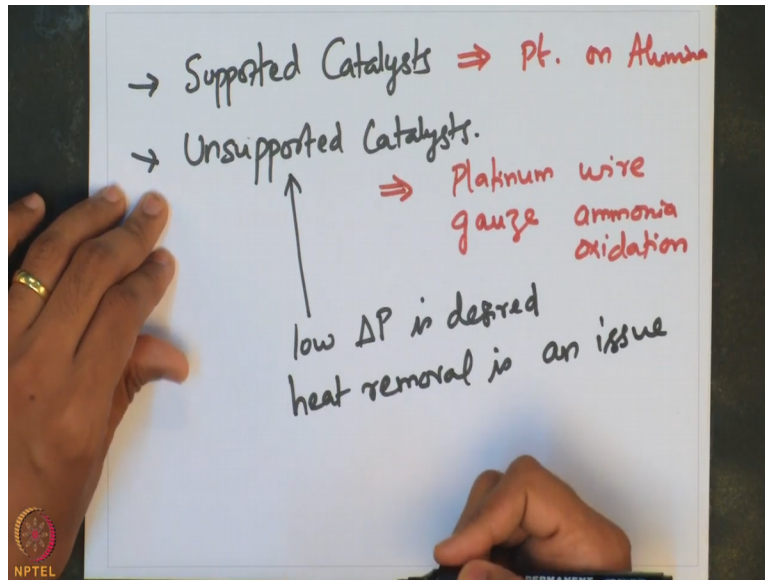 → Supported Catalysts ⇒ Pt. on Alumina
→ Unsupported Catalysts.
⇒ Platinum wire
gauze ammonia
oxidation
low ΔP is desired
heat removal is an issue
NPTEL
PERMANENT